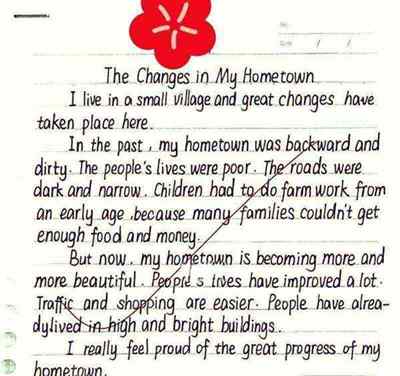 The Changes in My Hometown
I live in a small village and great changes have
taken place here.
In the past, my hometown was backward and
dirty. The people's lives were poor. The roads were
dark and narrow. Children had to do farm work from
an early age, because many families couldn't get
enough food and money.
But now, my hometown is becoming more and
more beautiful. People's lives have improved a lot.
Traffic and shopping are easier. People have alrea-
dylived in high and bright buildings.
I really feel proud of the great progress of my
hometown.